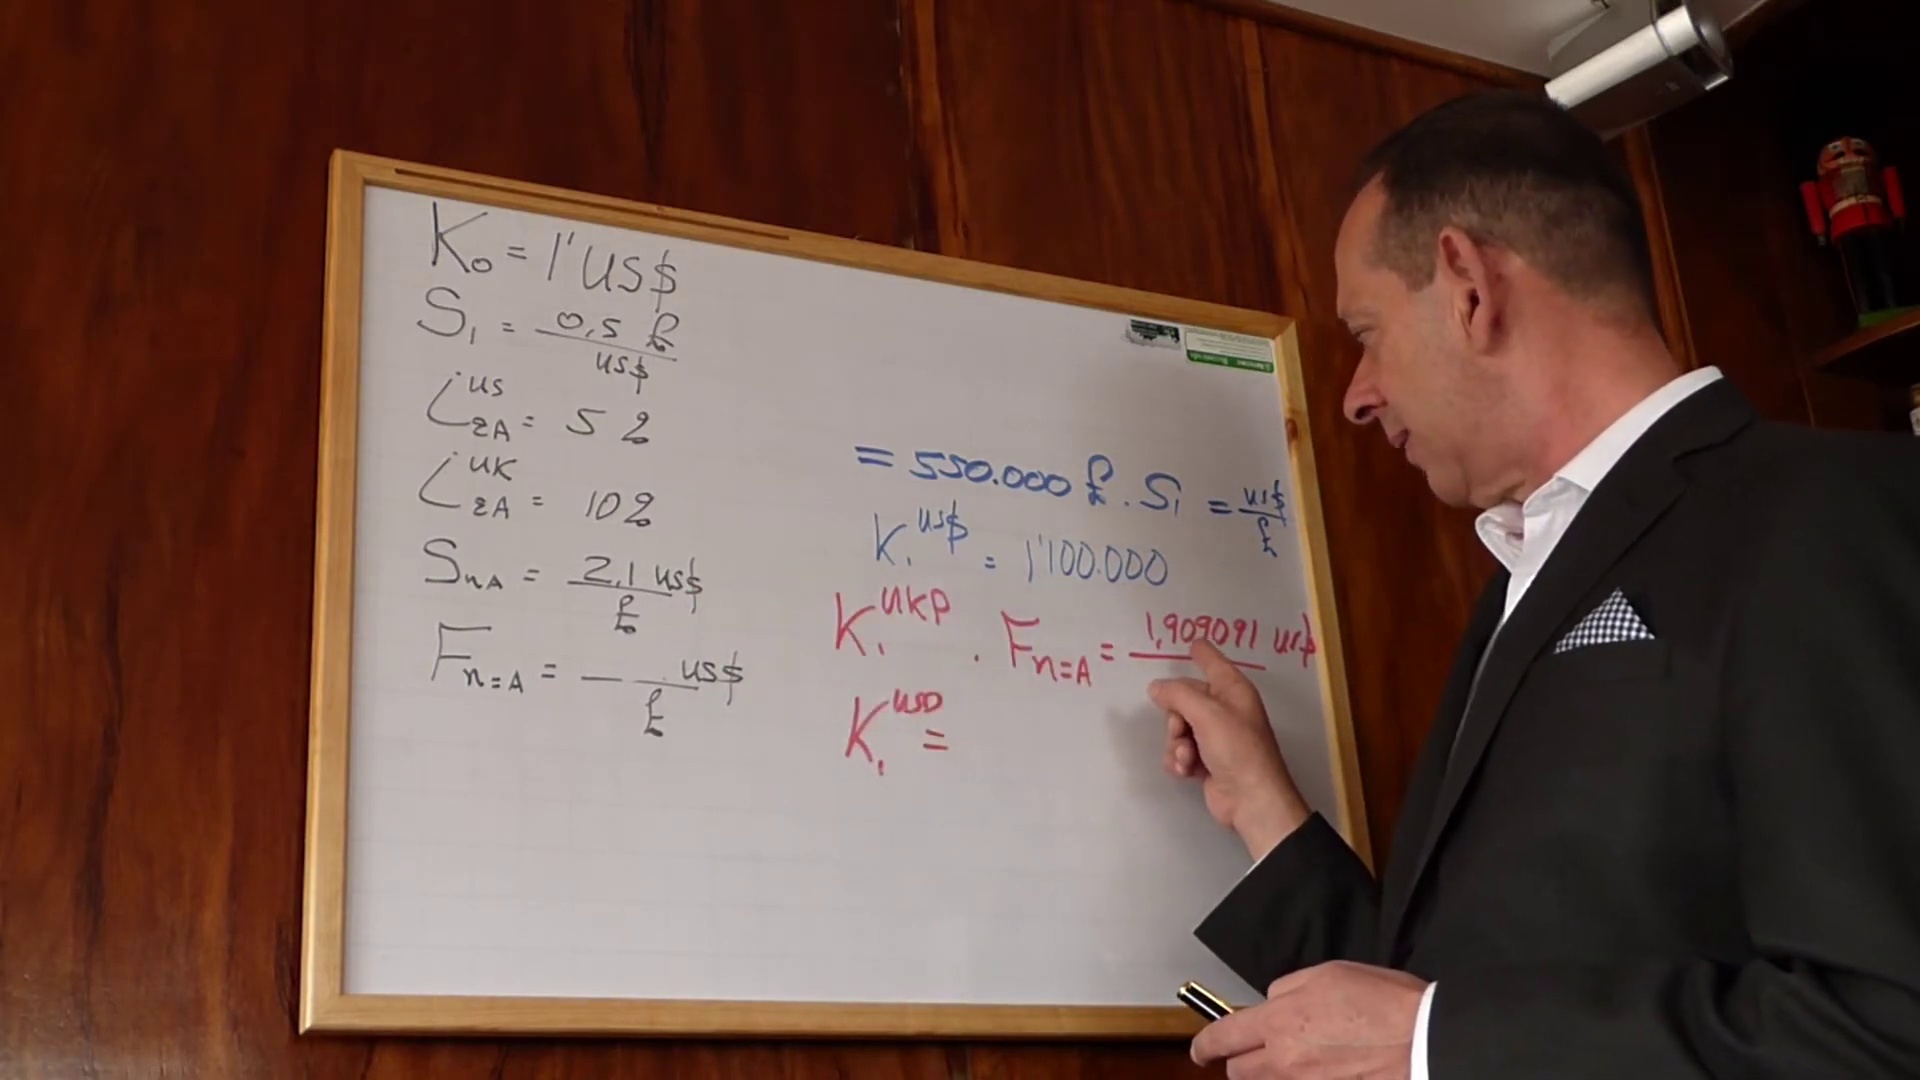 K₀ = 1' US$
S₁ = 0,5 £ / US$
i US RA = 5 %
i UK RA = 10 %
S nA = 2,1 US$ / £
F n=A = _ . US$ / £
= 550.000 £ . S₁ = US$ / £
K₁ US$ = 1'100.000
K₁ UKP . F n=A = 1,909091 US$
K₁ USD =